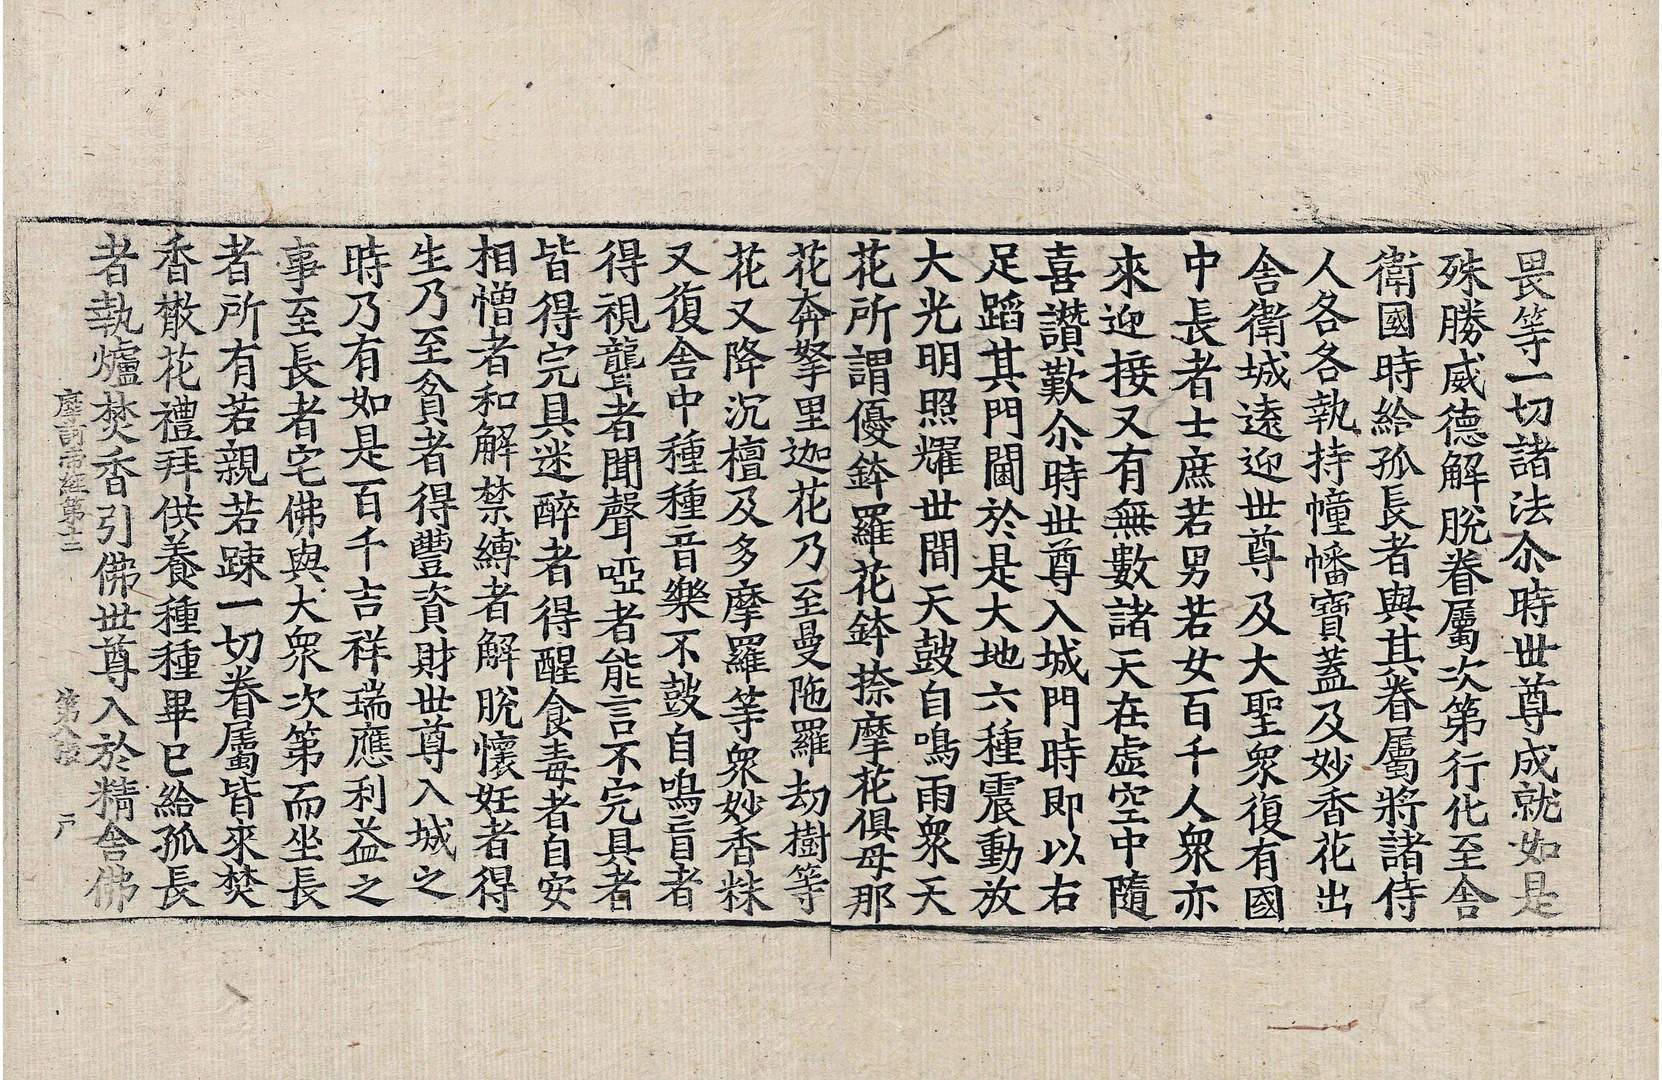 畏等一切諸法尒時世尊成就如是
殊勝威德解脫眷屬次第行化至舍
衛國時給孤長者與其眷屬將諸侍
人各各執持幢幡寶蓋及妙香花出
舍衛城遠迎世尊及大聖衆復有國
中長者士庶若男若女百千人衆亦
來迎接又有無數諸天在虛空中隨
喜讚歎尒時世尊入城門時即以右
足蹈其門閫於是大地六種震動放
大光明照耀世間天鼓自鳴雨衆天
花所謂優鉢羅花鉢捺摩花俱母那
花奔拏里迦花乃至曼陁羅劫樹等
花又降沉檀及多摩羅等衆妙香粖
又復舍中種種音樂不鼓自鳴盲者
得視聾者聞聲啞者能言不完具者
皆得完具迷醉者得醒食毒者自安
相憎者和解禁縛者解脫懷妊者得
生乃至貧者得豐資財世尊入城之
時乃有如是百千吉祥瑞應利益之
事至長者宅佛與大衆次第而坐長
者所有若親若踈一切眷屬皆來焚
香散花禮拜供養種種畢已給孤長
者執爐焚香引佛世尊入於精舍佛
帝經第十二
第八張 戸